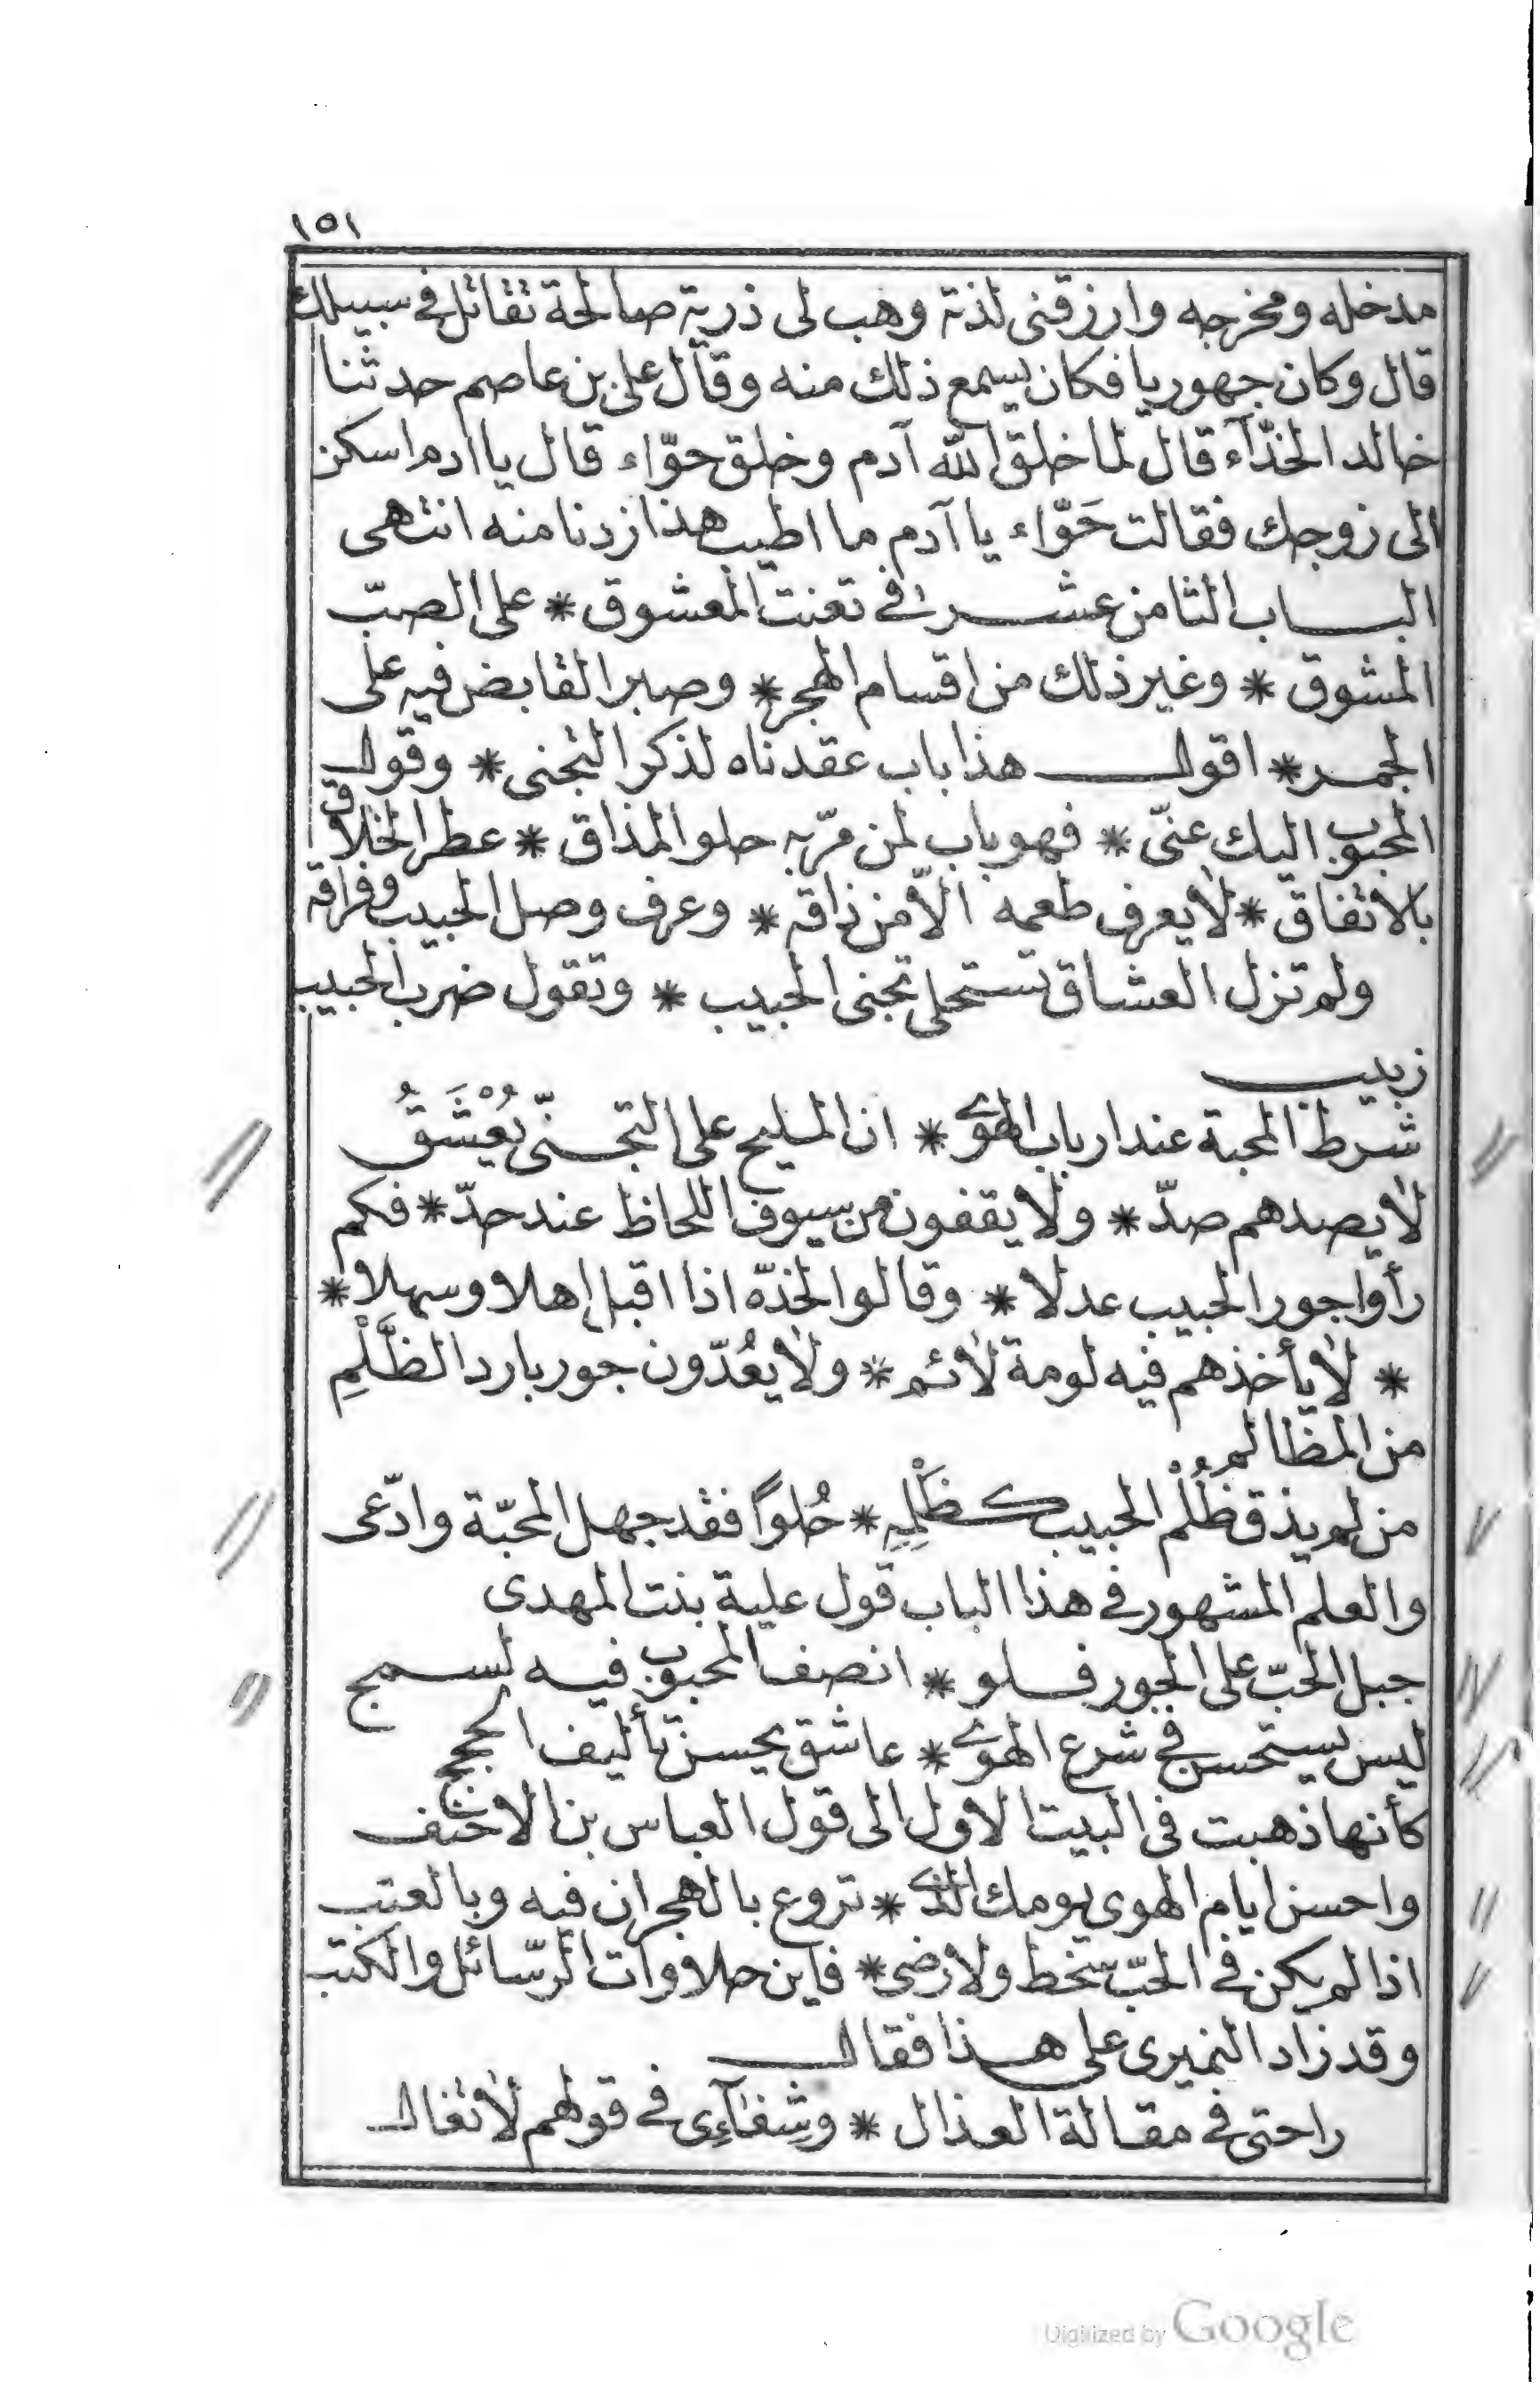 ١٥١
مدخله ومخرجه وارزقنى لذته وهب لى ذرية صالحة تقاتل فى سبيلك
قال وكان جهوريا فكان يسمع ذلك منه وقال على بن عاصم حدثنا
خالد الحذّآء قال لما خلق الله آدم وخلق حوّاء قال يا ادم اسكن
الى زوجك فقالت حَوّاء يا آدم ما اطيب هذا زدنا منه انتهى
البــاب الثامن عشــر فى تعنت المعشوق * على الصبّ
المشوق * وغير ذلك من اقسام الهجر * وصبر القابض فيه على
الجمر * اقول هذا باب عقدناه لذكر التجنى * وقول
المحبوب اليك عنّى * فهو باب لمن مرّ به حلو المذاق * عطر الخلاق
بالاتفاق * لا يعرف طعمه الاّ من ذاقه * وعرف وصل الحبيب وفراقه
ولم تزل العشاق تستحلى تجنى الحبيب * وتقول ضرب الحبيب
زبيب
شرط المحبة عند ارباب الهوى * ان المليح على التجــنّى يُعْشَقُ
لا يصدهم صدّ * ولا يقفون من سيوف اللحاظ عند حدّ * فكم
رأوا جور الحبيب عدلا * وقالوا لخدّه اذا اقبل اهلا وسهلا *
* لا يأخذهم فيه لومة لائم * ولا يعُدّون جور بارد الظَّلْمِ
من المظالم
من لم يذق ظُلْمُ الحبيب كظَلْمِهِ * حُلواً فقد جهل المحبّة وادّعى
والعلم المشهور فى هذا الباب قول علية بنت المهدى
جبل الحبّ على الجور فلو * انصف المحبوب فيه لسمج
ليس يستحسن فى شرع الهوى * عاشق يحسن تأليف الحجج
كأنها ذهبت فى البيت الاول الى قول العباس بن الاحنف
واحسن ايام الهوى يومك الذى * تروع بالهجران فيه وبالعتب
اذا لم يكن فى الحبّ سخط ولا رضى * فاين حلاوات الرّسائل والكتب
وقد زاد النميرى على هــذا فقال
راحتى فى مقالة العذال * وشِفآءِى فى قولهم لا تغال
Digitized by Google